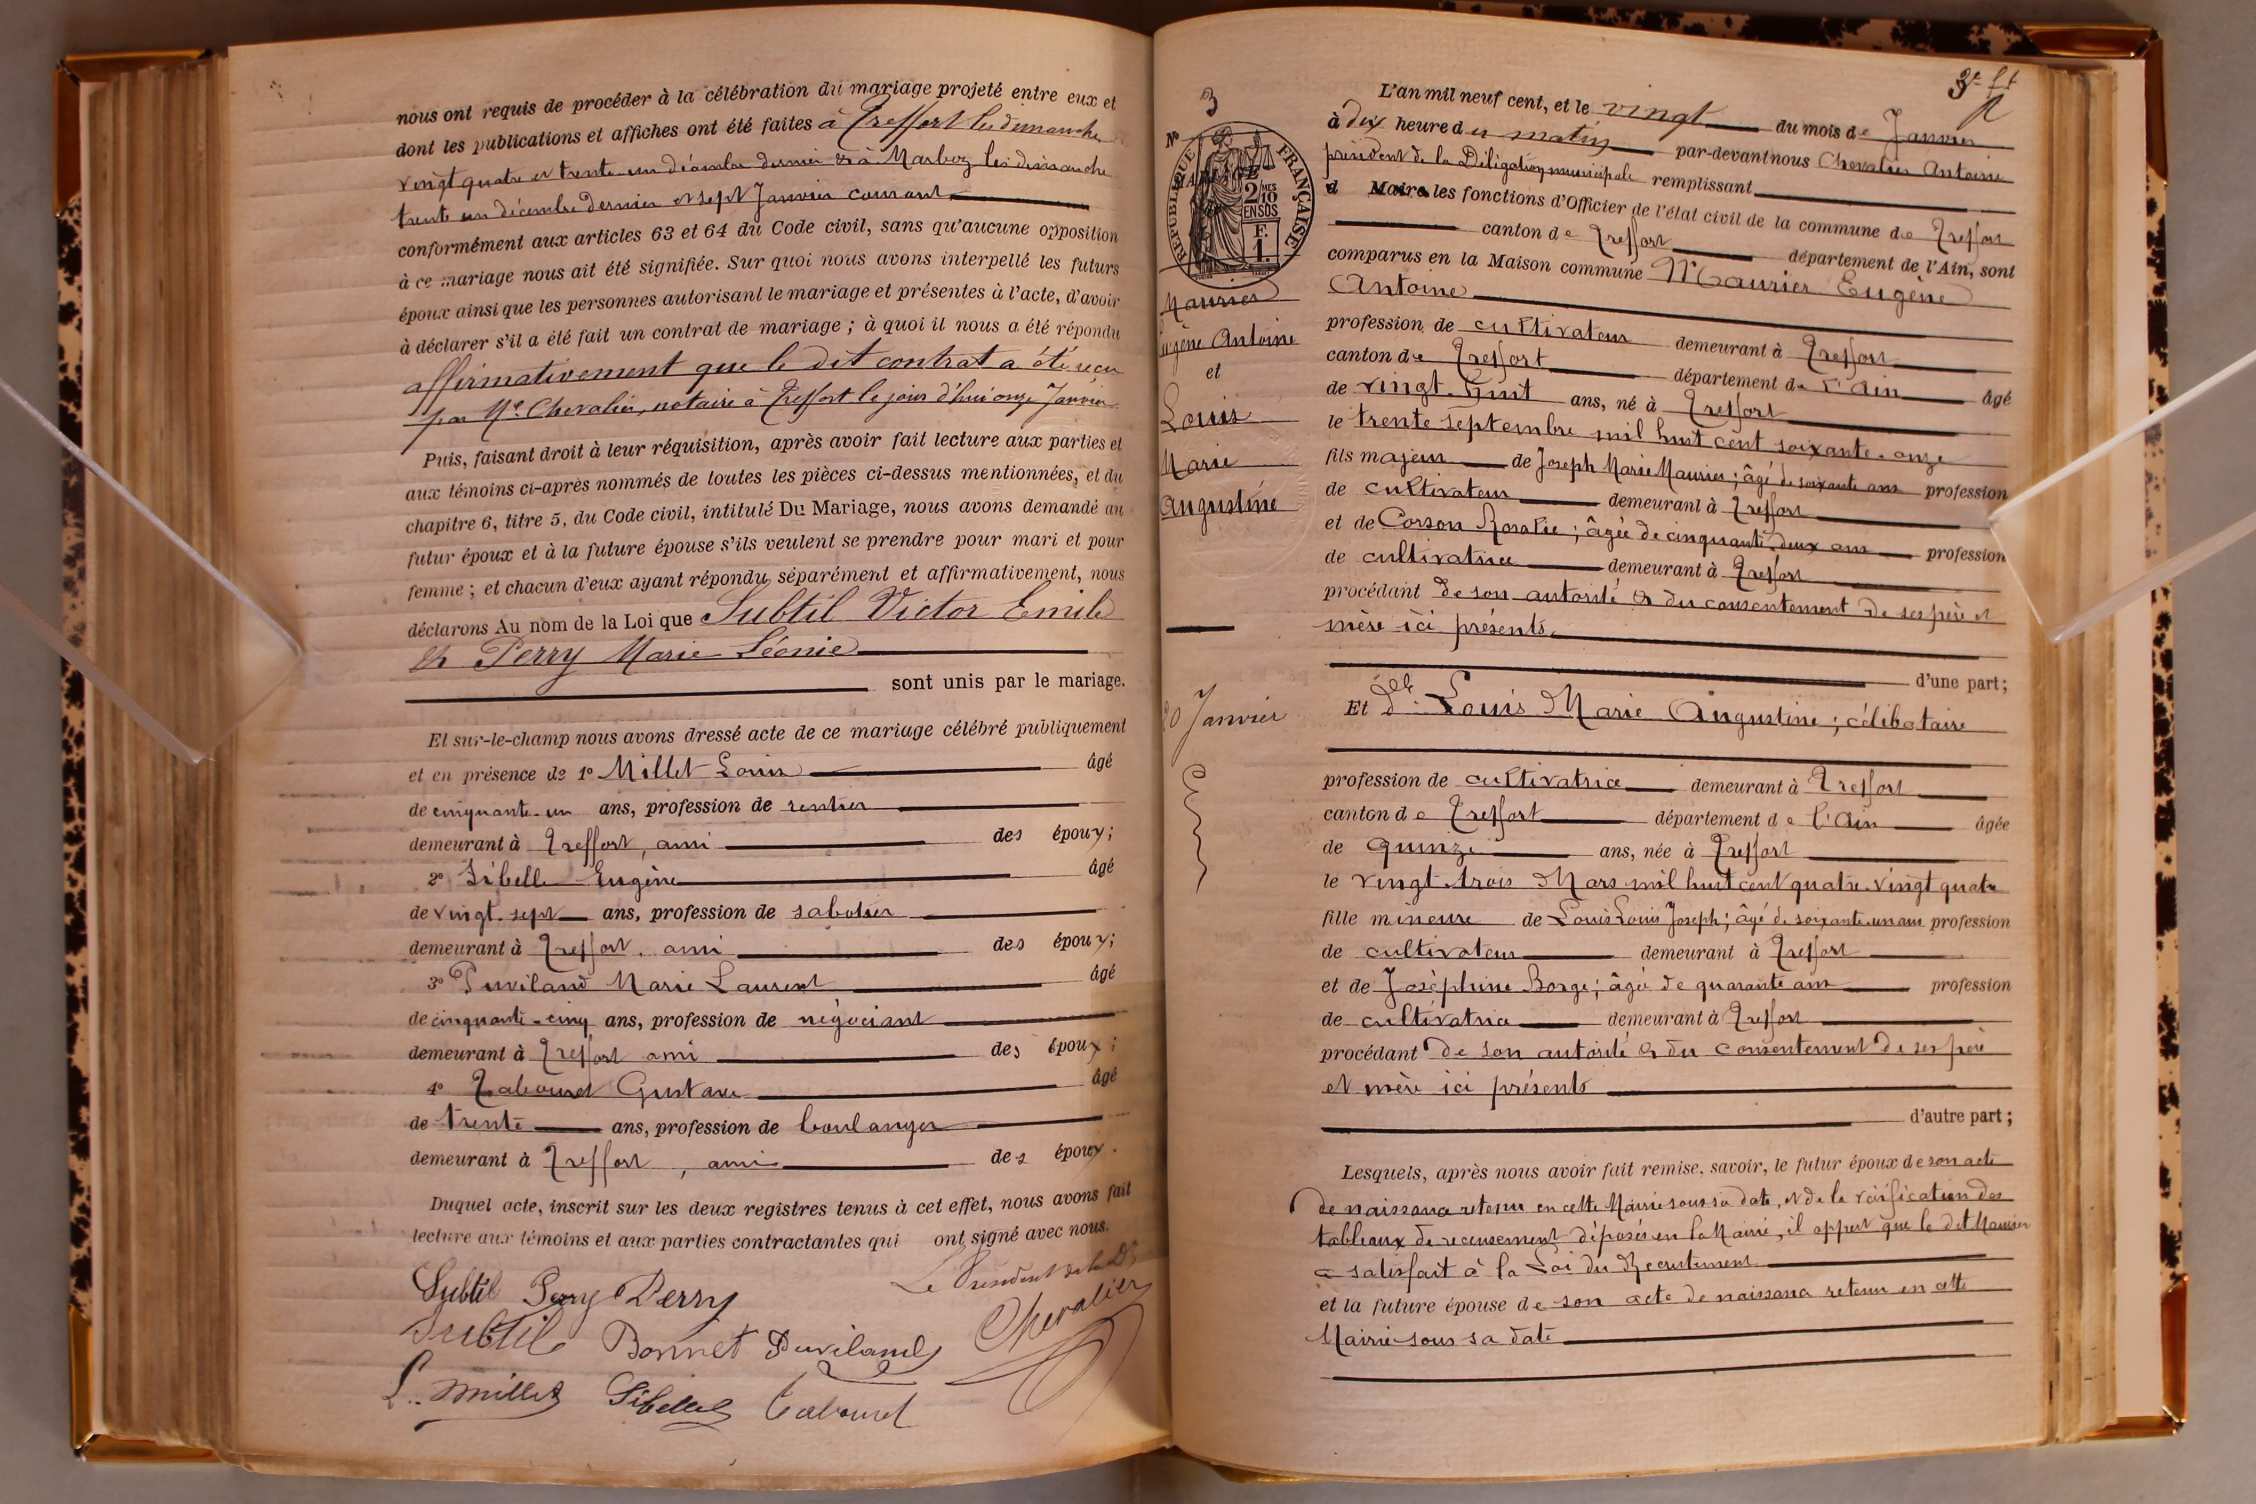 nous ont requis de procéder à la célébration du mariage projeté entre eux et
dont les publications et affiches ont été faites à Treffort les dimanches
vingt quatre et trente-un décembre dernier & à Marboz les dimanche
trente un décembre dernier et sept Janvier courant
conformément aux articles 63 et 64 du Code civil, sans qu'aucune opposition
à ce mariage nous ait été signifiée. Sur quoi nous avons interpellé les futurs
époux ainsi que les personnes autorisant le mariage et présentes à l'acte, d'avoir
à déclarer s'il a été fait un contrat de mariage ; à quoi il nous a été répondu
affirmativement que le dit contrat a été reçu
par Me Chevalier, notaire à Treffort le jour d'hui onze Janvier
Puis, faisant droit à leur réquisition, après avoir fait lecture aux parties et
aux témoins ci-après nommés de toutes les pièces ci-dessus mentionnées, et du
chapitre 6, titre 5, du Code civil, intitulé Du Mariage, nous avons demandé au
futur époux et à la future épouse s'ils veulent se prendre pour mari et pour
femme ; et chacun d'eux ayant répondu séparément et affirmativement, nous
déclarons Au nom de la Loi que Subtil Victor Emile
& Perry Marie Léonie
sont unis par le mariage.
Et sur-le-champ nous avons dressé acte de ce mariage célébré publiquement
et en présence de 1° Millet Louis âgé
de cinquante-un ans, profession de rentier
demeurant à Treffort, ami des époux ;
2° Sibelle Eugène âgé
de vingt-sept ans, profession de sabotier
demeurant à Treffort, ami des époux ;
3° Puvilland Marie Laurent âgé
de cinquante-cinq ans, profession de négociant
demeurant à Treffort ami des époux ;
4° Tabouret Gustave âgé
de trente ans, profession de boulanger
demeurant à Treffort, ami des époux.
Duquel acte, inscrit sur les deux registres tenus à cet effet, nous avons fait
lecture aux témoins et aux parties contractantes qui ont signé avec nous.
Le Président de la Dn
Subtil Perry Perry
Chevalier
Subtil Bonnet Puviland
L. Millet Sibelle Tabouret
3
N°
RÉPUBLIQUE FRANÇAISE
2/10 MES
EN SUS
F.
1.
Maurier
Eugène Antoine
et
Louis
Marie
Augustine
20 Janvier
L'an mil neuf cent, et le vingt du mois de Janvier
à dix heure du matin par-devant nous Chevalier Antoine
président de la Délégation municipale remplissant
d Maire les fonctions d'Officier de l'état civil de la commune de Treffort
canton de Treffort département de l'Ain, sont
comparus en la Maison commune Maurier Eugène
Antoine
profession de cultivateur demeurant à Treffort
canton de Treffort département de l'Ain âgé
de vingt-huit ans, né à Treffort
le trente septembre mil huit cent soixante-onze
fils majeur de Joseph Marie Maurier ; âgé de soixante ans profession
de cultivateur demeurant à Treffort
et de Corson Rosalie ; âgée de cinquante-deux ans profession
de cultivatrice demeurant à Treffort
procédant de son autorité & du consentement de ses père et
mère ici présents
d'une part ;
Et dlle Louis Marie Augustine ; célibataire
profession de cultivatrice demeurant à Treffort
canton de Treffort département de l'Ain âgée
de quinze ans, née à Treffort
le vingt-trois Mars mil huit cent quatre-vingt quatre
fille mineure de Louis Louis Joseph ; âgé de soixante-un ans profession
de cultivateur demeurant à Treffort
et de Josèphine Borge ; âgée de quarante ans profession
de cultivatrice demeurant à Treffort
procédant de son autorité & du consentement de ses père
et mère ici présents
d'autre part ;
Lesquels, après nous avoir fait remise, savoir, le futur époux de son acte
de naissance retenu en cette Mairie sous sa date, et de la vérification des
tableaux de recensement déposés en la Mairie, il appert que le dit Maurier
a satisfait à la Loi du Recrutement
et la future épouse de son acte de naissance retenu en cette
Mairie sous sa date